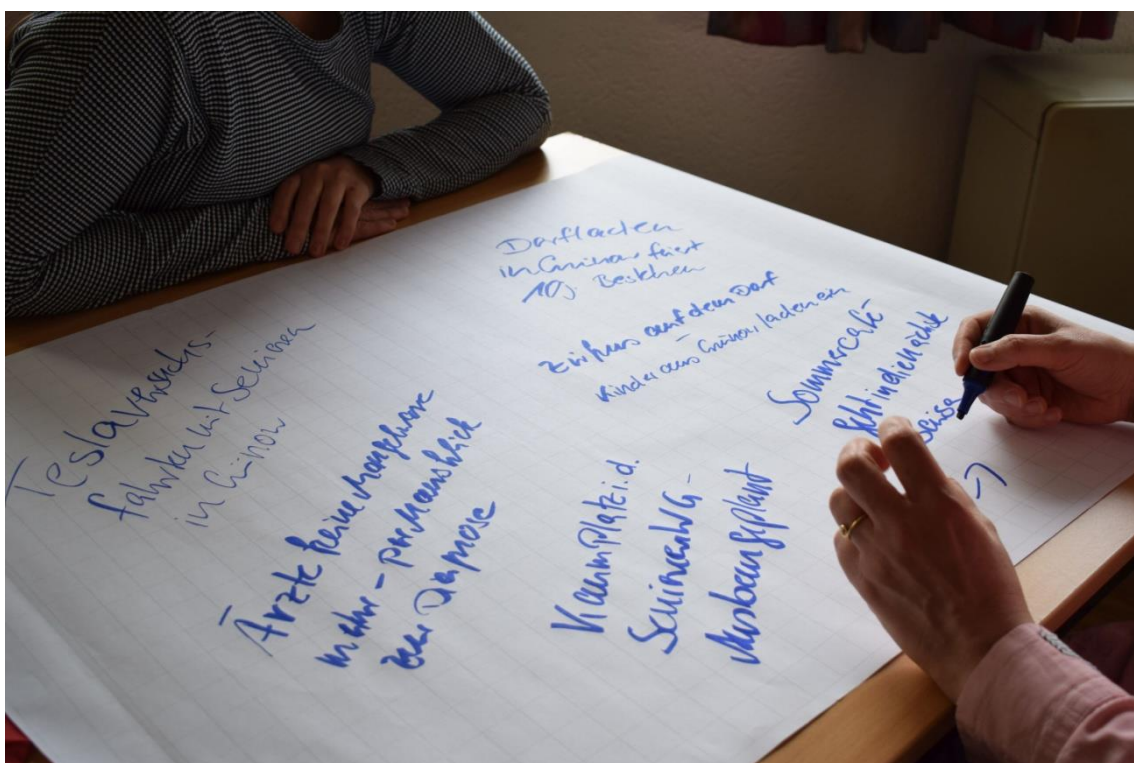 Dorfladen
in Grünow feiert
10j. Bestehen
Zirkus auf dem Dorf
-
Kinder aus Grünow laden ein
Sommercafé
geht in die nächste
Teslaversuchs-
fahrten mit Senioren
in Grünow
Ärzte keine Mangelware
mehr - per Mausklick
zur Diagnose
Kaum Platz i. d.
Senioren WG -
Ausbau geplant